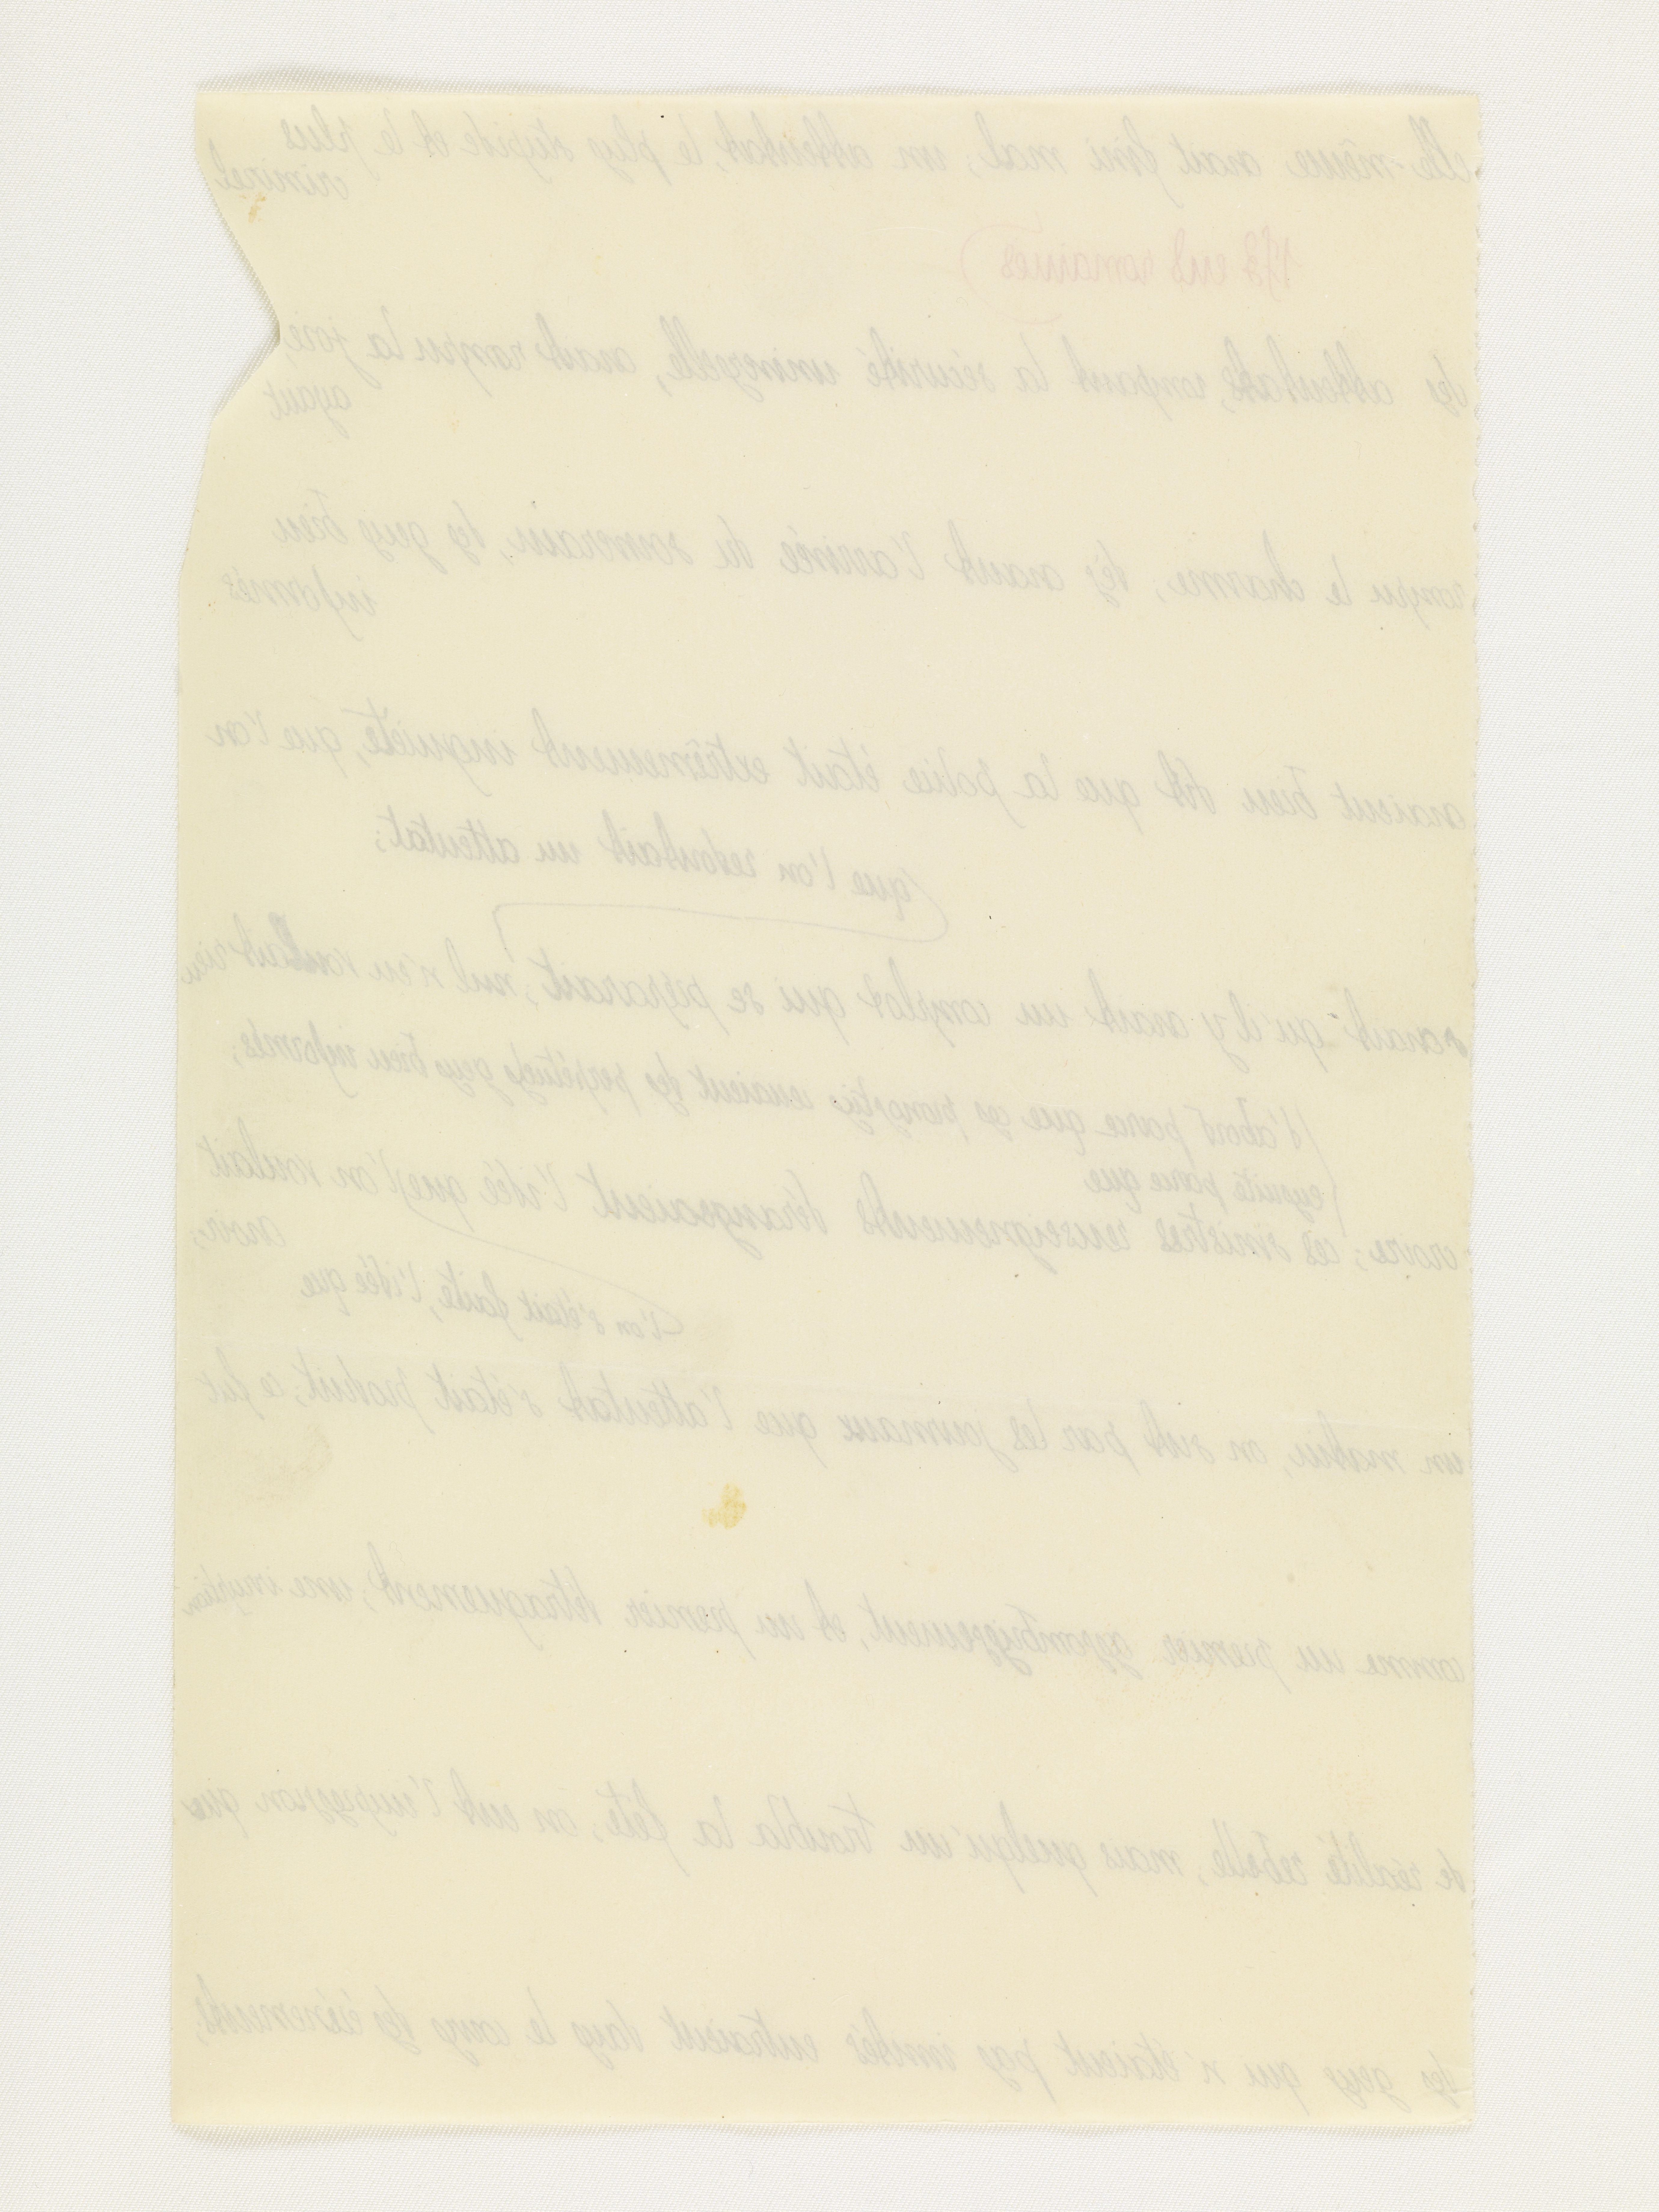 elle-même avait fini mal, un attentat, le plus stupide et le plus
criminel
173 est romaines
des attentats, rompant la sécurité universelle, avait rompu la joie,
ayant
rompu le charme; dès avant l'arrivée du souverain, des gens bien
informés
avaient bien dit que la police était extrêmement inquiète, que l'on
que l'on redoutait un attentat;
savait qu'il y avait un complot qui se préparait; nul n'en voulait rien
d'abord parce que ces pronostics venaient des perpétuels gens bien informés;
ensuite parce que
croire; ces sinistres renseignements dérangeaient l'idée que l'on voulait
avoir;
l'on s'était faite, l'idée que
un matin, on sut par les journaux que l'attentat s'était produit; ce fut
comme un premier assombrissement, et un premier détraquement; une irruption
de réalité rebelle; mais quelqu'un troubla la fête; on eut l'impression que
des gens qui n'étaient pas invités entraient dans le cours des événements,